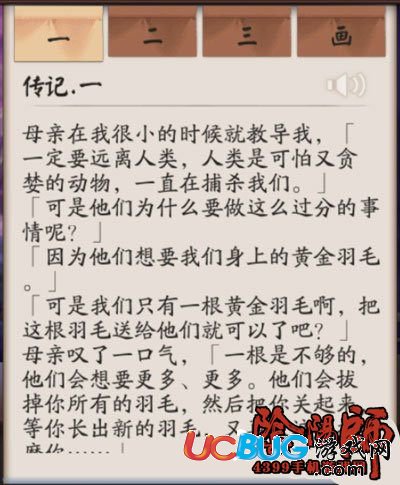 一 二 三 画
传记.一
母亲在我很小的时候就教导我，「
一定要远离人类，人类是可怕又贪
婪的动物，一直在捕杀我们。」
「可是他们为什么要做这么过分的事
情呢？」
「因为他们想要我们身上的黄金羽毛
。」
「可是我们只有一根黄金羽毛啊，把
这根羽毛送给他们就可以了吧？」
母亲叹了一口气，「一根是不够的，
他们会想要更多、更多。他们会拔
掉你所有的羽毛，然后把你关起来，
等你长出新的羽毛，又
磨你……」
阴阳师
UCBUG游戏网
4399手机游戏网